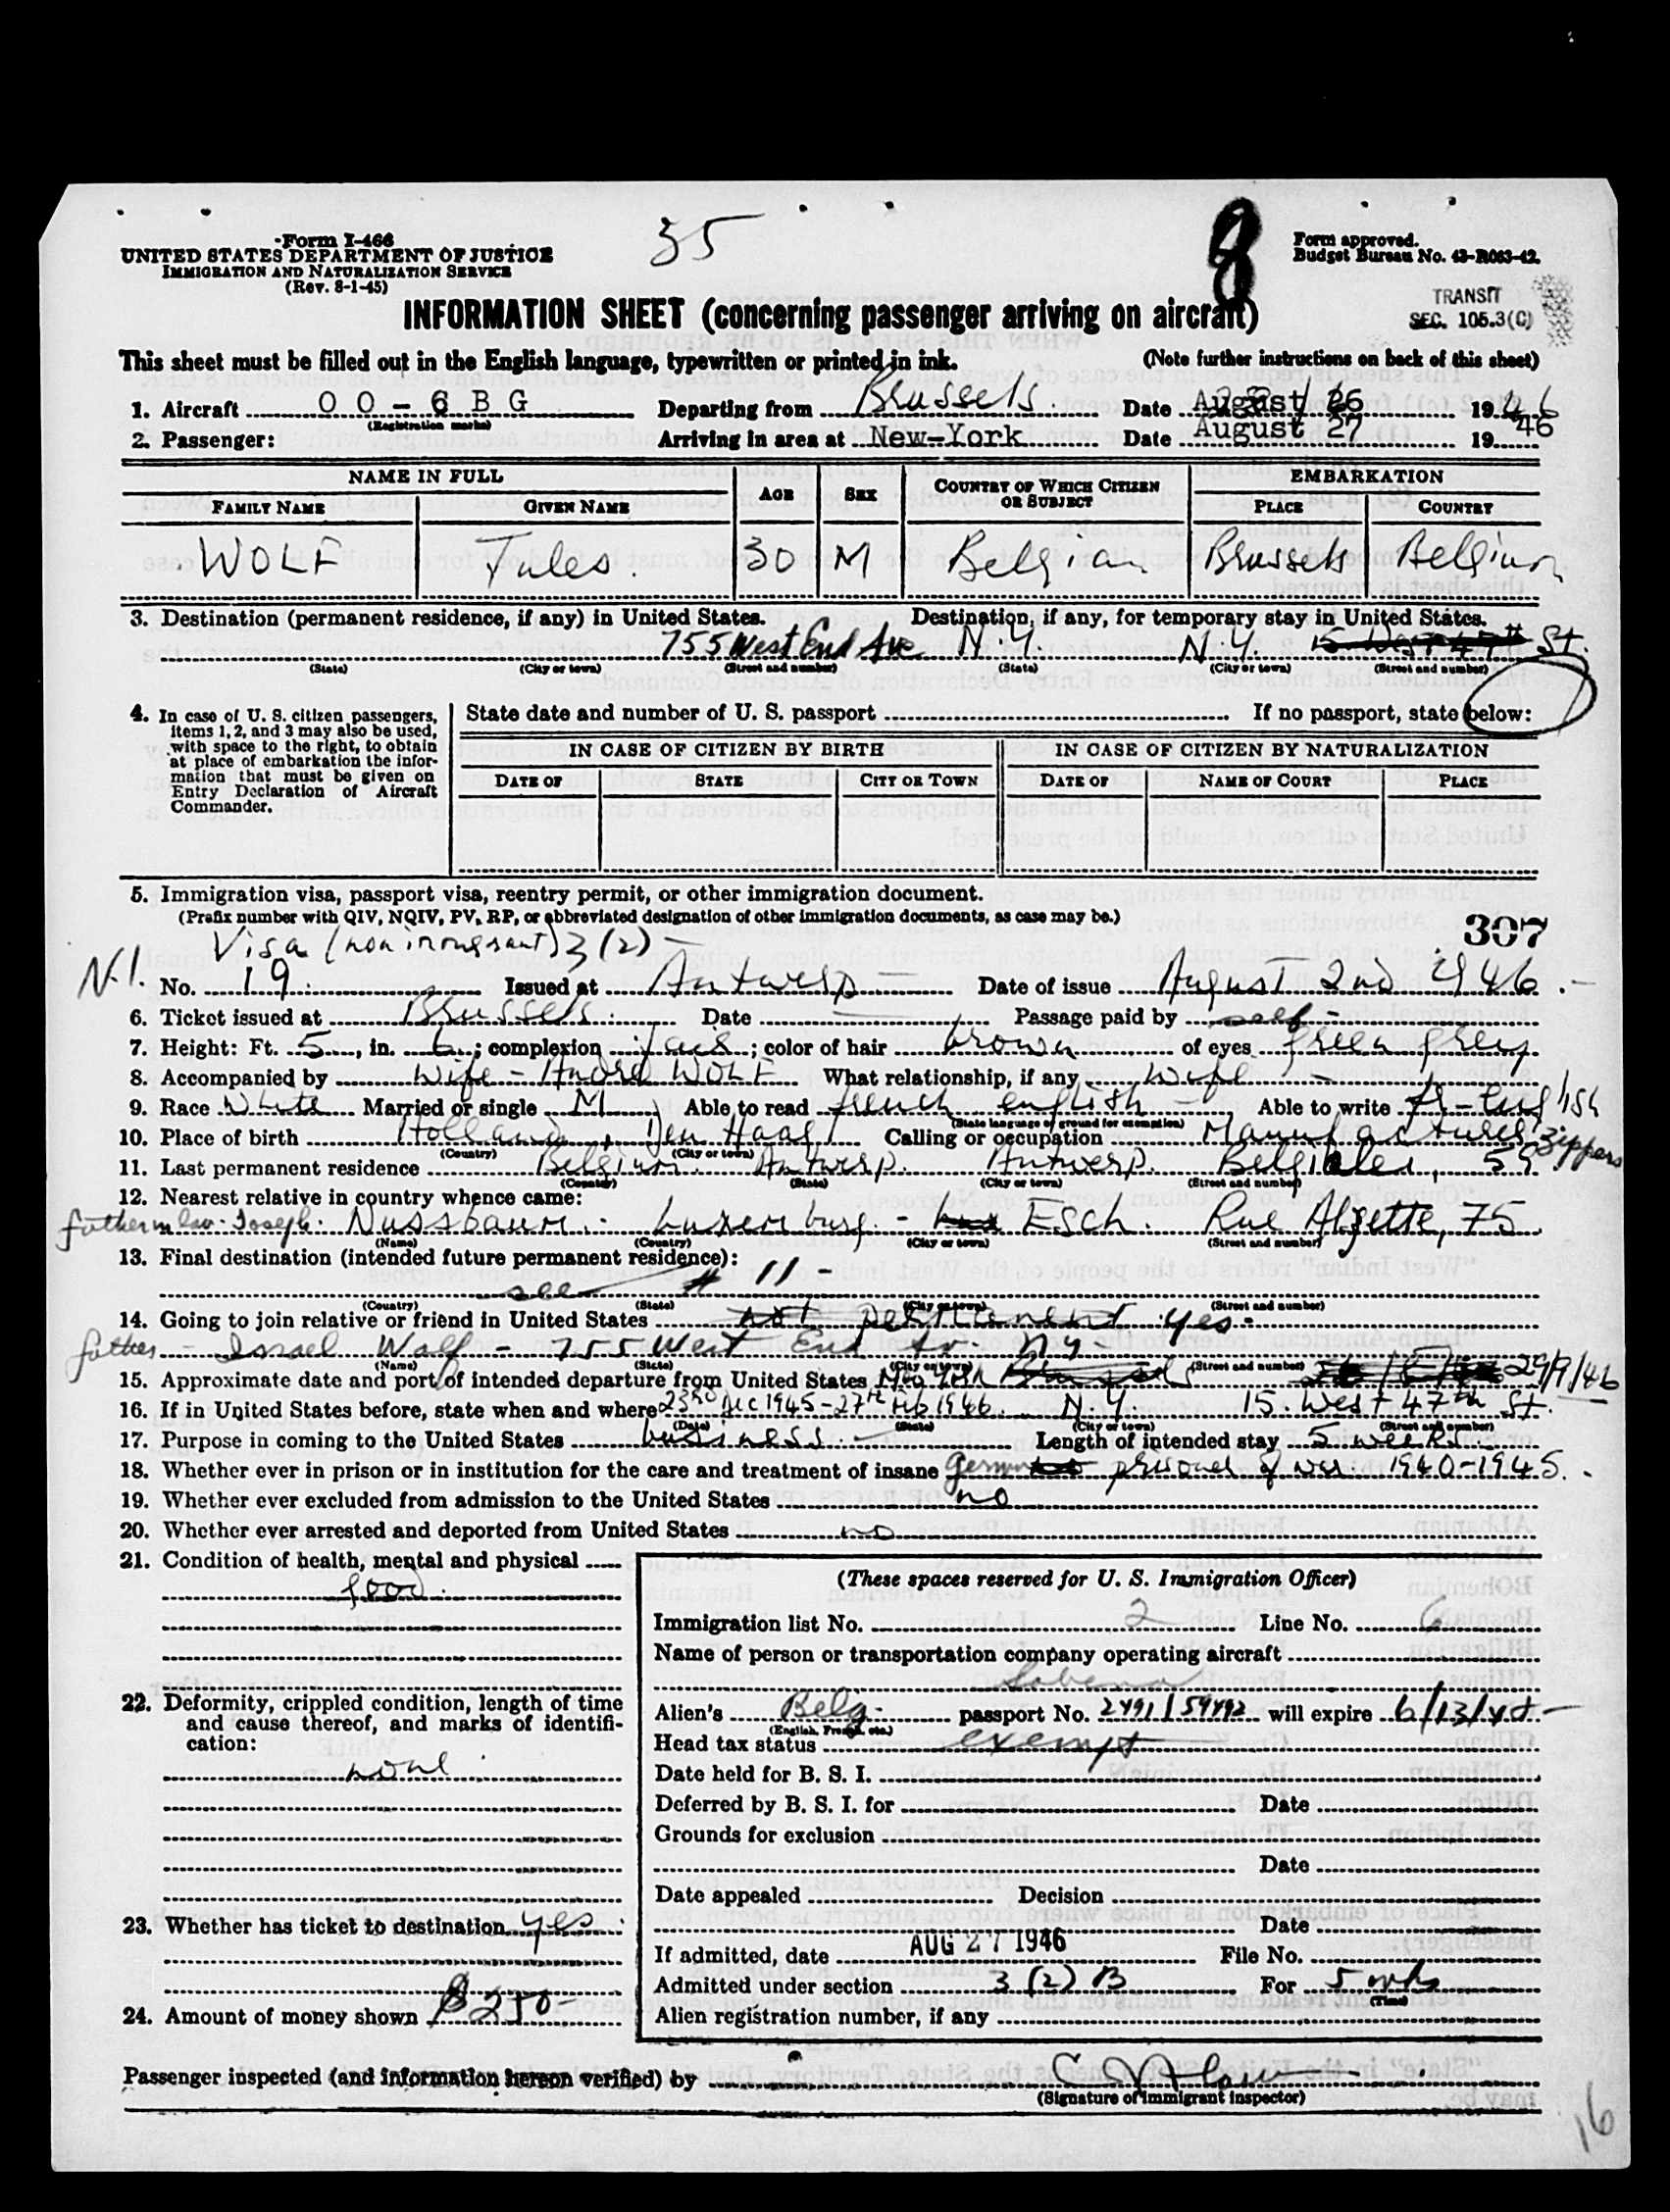 35
8
Form I-466
UNITED STATES DEPARTMENT OF JUSTICE
IMMIGRATION AND NATURALIZATION SERVICE
(Rev. 8-1-45)
Form approved.
Budget Bureau No. 43-R063-42.
TRANSIT
SEC. 105.3(C)
INFORMATION SHEET (concerning passenger arriving on aircraft)
This sheet must be filled out in the English language, typewritten or printed in ink. (Note further instructions on back of this sheet)
1. Aircraft OO-CBG Departing from Brussels. Date August 26 1946
(Registration marks)
2. Passenger: Arriving in area at New-York Date August 27 1946
NAME IN FULL AGE SEX COUNTRY OF WHICH CITIZEN OR SUBJECT EMBARKATION
FAMILY NAME GIVEN NAME PLACE COUNTRY
WOLF Jules. 30 M Belgian Brussels Belgium
3. Destination (permanent residence, if any) in United States. Destination, if any, for temporary stay in United States.
755 West End Ave N.Y. N.Y. 15 West 47th St.
(State) (City or town) (Street and number) (State) (City or town) (Street and number)
4. In case of U. S. citizen passengers, items 1, 2, and 3 may also be used, with space to the right, to obtain at place of embarkation the information that must be given on Entry Declaration of Aircraft Commander.
State date and number of U. S. passport If no passport, state below:
IN CASE OF CITIZEN BY BIRTH IN CASE OF CITIZEN BY NATURALIZATION
DATE OF STATE CITY OR TOWN DATE OF NAME OF COURT PLACE
5. Immigration visa, passport visa, reentry permit, or other immigration document.
(Prefix number with QIV, NQIV, PV, RP, or abbreviated designation of other immigration documents, as case may be.)
307
Visa (non immigrant) 3(2) -
N.I. No. 19 Issued at Antwerp Date of issue August 2nd 1946.-
6. Ticket issued at Brussels. Date Passage paid by self -
7. Height: Ft. 5, in. 6; complexion fair; color of hair brown of eyes green grey.
8. Accompanied by Wife - André WOLF What relationship, if any wife -
9. Race White Married or single M Able to read french english - Able to write fr - english
(State language or ground for exemption)
10. Place of birth Holland, Den Haag Calling or occupation Manufacturer Zippers
(Country) (City or town)
11. Last permanent residence Belgium. Antwerp. Antwerp. Belgiëlei, 59
(Country) (State) (City or town) (Street and number)
12. Nearest relative in country whence came:
father in law. Joseph. Nussbaum. - Luxemburg. - Esch. Rue Alzette, 75
(Name) (Country) (City or town) (Street and number)
13. Final destination (intended future permanent residence):
see # 11 -
(Country) (State) (City or town) (Street and number)
14. Going to join relative or friend in United States not permanent yes -
father - Israel Wolf - 755 West End Av. NY -
(Name) (State) (City or town) (Street and number)
15. Approximate date and port of intended departure from United States New York Brussels 29/9/46
16. If in United States before, state when and where 23rd Dec 1945 - 27th Feb 1946. N.Y. 15. West 47th St.
(Date) (State) (City or town) (Street and number)
17. Purpose in coming to the United States business. - Length of intended stay 5 weeks.
18. Whether ever in prison or in institution for the care and treatment of insane German prisoner of war. 1940-1945. -
19. Whether ever excluded from admission to the United States no
20. Whether ever arrested and deported from United States no
21. Condition of health, mental and physical
good.
22. Deformity, crippled condition, length of time and cause thereof, and marks of identification:
none.
23. Whether has ticket to destination yes.
24. Amount of money shown $250-
(These spaces reserved for U. S. Immigration Officer)
Immigration list No. 2 Line No. 6
Name of person or transportation company operating aircraft
Sabena
Alien's Belg. passport No. 2491/59492 will expire 6/13/48 -
(English, French, etc.)
Head tax status exempt
Date held for B. S. I.
Deferred by B. S. I. for Date
Grounds for exclusion
Date
Date appealed Decision
Date
If admitted, date AUG 27 1946 File No.
Admitted under section 3 (2) B For 5 wks
(Time)
Alien registration number, if any
Passenger inspected (and information hereon verified) by
(Signature of immigrant inspector)
16